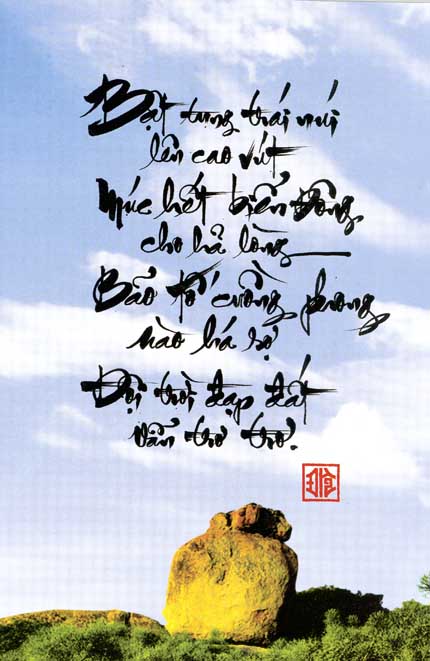 Bật tung trái núi
lên cao vút
Múc hết biển Đông
cho hả lòng
Bão tố cuồng phong
nào há sợ
Đội trời đạp đất
vẫn trơ trơ.